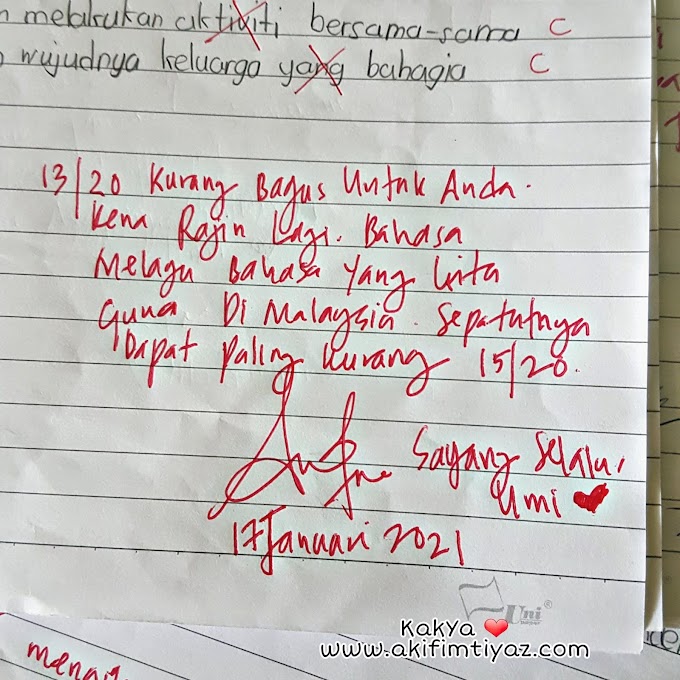 melakukan aktiviti bersama-sama C
wujudnya keluarga yang bahagia C
13/20 Kurang Bagus Untuk Anda.
Kena Rajin Lagi. Bahasa
Melayu Bahasa Yang Kita
Guna Di Malaysia. Sepatutnya
Dapat Paling Kurang 15/20.
Sayang Selalu,
Umi ❤
17 Januari 2021
Uni
KaKYa ❤
www.akifimtiyaz.com